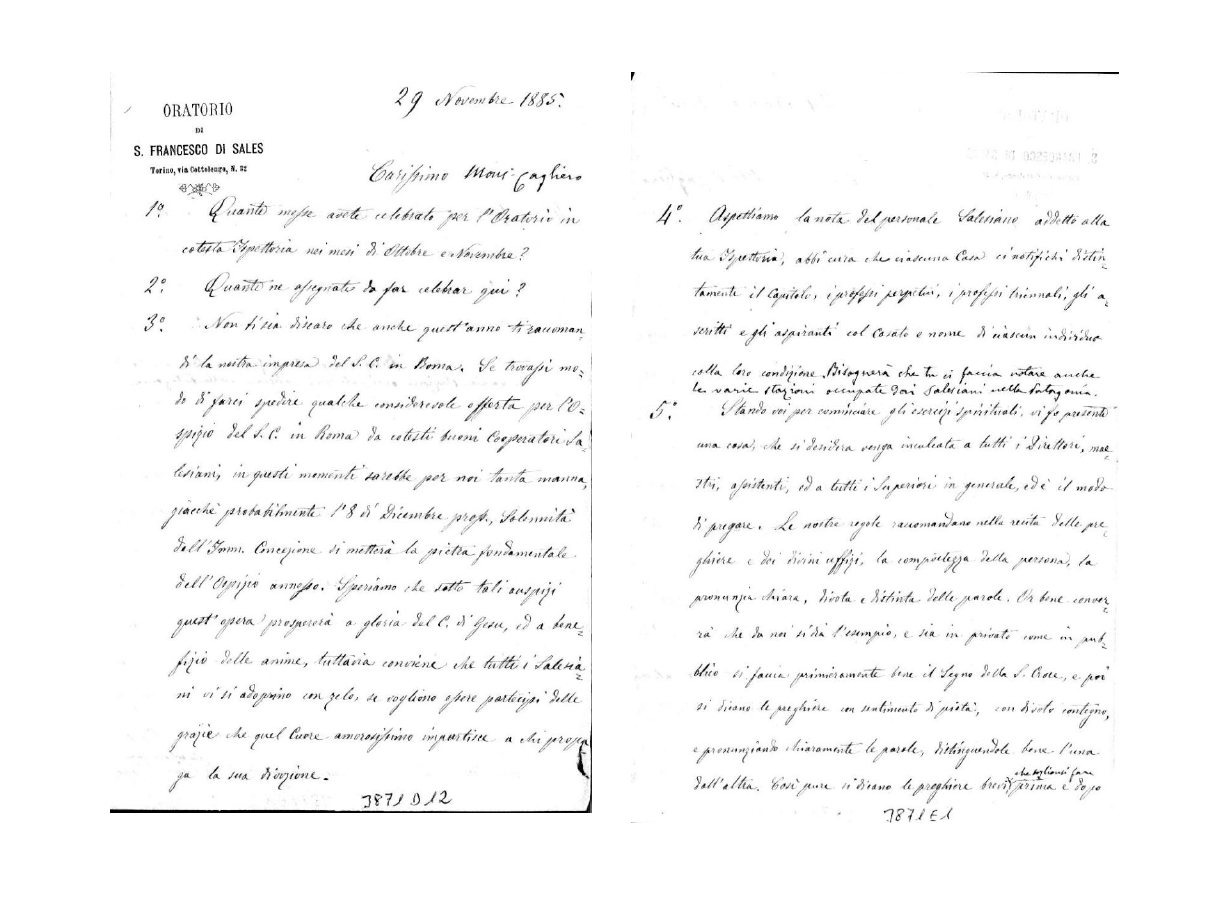 ORATORIO
DI
S. FRANCESCO DI SALES
Torino, via Cottolengo, N. 32
29 Novembre 1885.
Carissimo Mons. Cagliero
1º. Quante messe avete celebrato per l'Oratorio in
cotesta Ispettoria nei mesi di Ottobre e Novembre?
2º. Quante ne assegnate da far celebrar qui?
3º. Non ti sia discaro che anche quest'anno ti raccoman=
di la nostra impresa del S. C. in Roma. Se trovassi mo=
do di farci spedire qualche considerevole offerta per l'O=
spizio del S. C. in Roma da cotesti buoni Cooperatori Sa=
lesiani, in questi momenti sarebbe per noi tanta manna,
giacchè probabilmente l'8 di Dicembre pross., Solennità
dell'Imm. Concezione si metterà la pietra fondamentale
dell'Ospizio annesso. Speriamo che sotto tali auspizi
quest'opera prospererà a gloria del C. di Gesù, ed a bene=
fizio delle anime, tuttavia conviene che tutti i Salesia=
ni vi si adoprino con zelo, se vogliono essere partecipi delle
grazie che quel Cuore amorosissimo impartisce a chi propa
ga la sua divozione.
3871 D 12
4º. Aspettiamo la nota del personale Salesiano addetto alla
tua Ispettoria, abbi cura che ciascuna Casa ci notifichi distin=
tamente il Capitolo, i professi perpetui, i professi triennali, gli a=
scritti e gli aspiranti col Casato e nome di ciascun individuo
colla loro condizione. Bisognerà che tu ci faccia notare anche
le varie stazioni occupate dai Salesiani nella Patagonia.
5º. Stando voi per cominciare gli esercizi spirituali, vi fo presente
una cosa, che si desidera venga inculcata a tutti i Direttori, mae=
stri, assistenti, ed a tutti i Superiori in generale, ed è il modo
di pregare. Le nostre regole raccomandano nella recita delle pre=
ghiere e dei divini uffizi, la compostezza della persona, la
pronunzia chiara, divota e distinta delle parole. Or bene conver=
rà che da noi si dia l'esempio, e sia in privato come in pub=
blico si faccia primieramente bene il Segno della S. Croce, e poi
si dicano le preghiere con sentimento di pietà, con divoto contegno,
e pronunziando chiaramente le parole, distinguendole bene l'una
che soglionsi fare
dall'altra. Così pure si dicano le preghiere brevi prima e dopo
3871 E 1